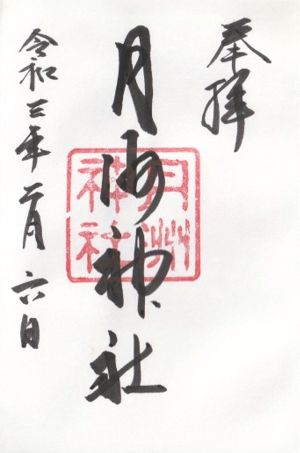 奉拝
月洲神社
月洲
神社
令和三年二月六日